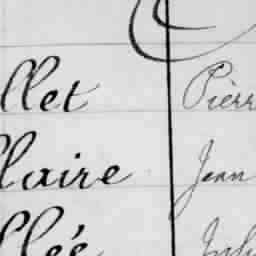 llet Pierr
llaire Jean
llée